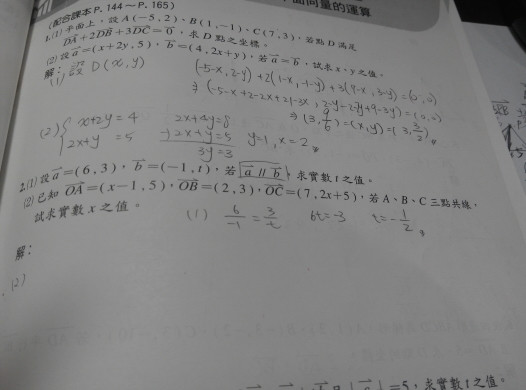 面向量的運算
(配合課本P.144～P.165)
1.(1)平面上，設A(-5,2)、B(1,-1)、C(7,3)，若點D滿足
DA+2DB+3DC=0，求D點之坐標。
(2)設a=(x+2y,5)，b=(4,2x+y)，若a=b，試求x、y之值。
解：
(1) D(x,y)
(-5-x,2-y)+2(1-x,-1-y)+3(7-x,3-y)=(0,0)
(-5-x+2-2x+21-3x, 2-y-2-2y+9-3y)=(0,0)
(3, 9/6)=(x,y)=(3, 3/2)
(2) { x+2y=4
2x+y=5
2x+4y=8
-) 2x+y=5
3y=3
y=1, x=2
2.(1)設a=(6,3)，b=(-1,t)，若a//b，求實數t之值。
(2)已知OA=(x-1,5)，OB=(2,3)，OC=(7,2x+5)，若A、B、C三點共線，
試求實數x之值。
(1) 6/-1=3/t 6t=-3 t=-1/2
解：
(2)
=5，求實數t之值。